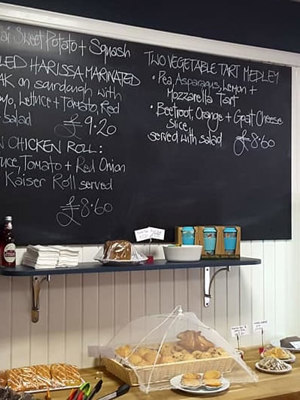 ai Sweet Potato + Squash
LED HARISSA MARINATED
AK on sourdough with
Lettuce + Tomato, Red
salad £9.20
N CHICKEN ROLL:
uce, Tomato + Red Onion
Kaiser Roll served
£8.60
TWO VEGETABLE TART MEDLEY
• Pea, Asparagus, Lemon +
Mozzarella Tart
• Beetroot, Orange + Goat Cheese
Slice
served with salad £8.60